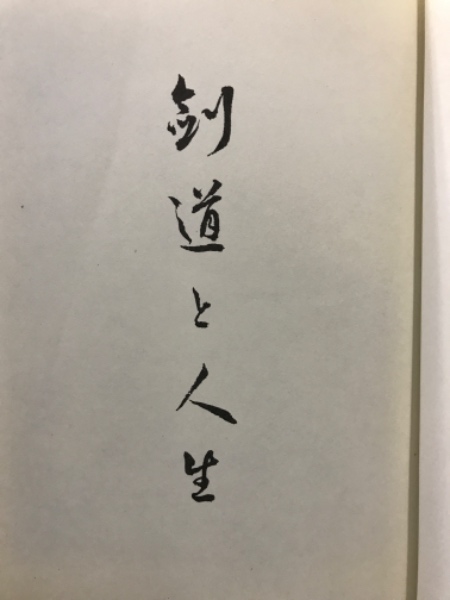 剣道と人生